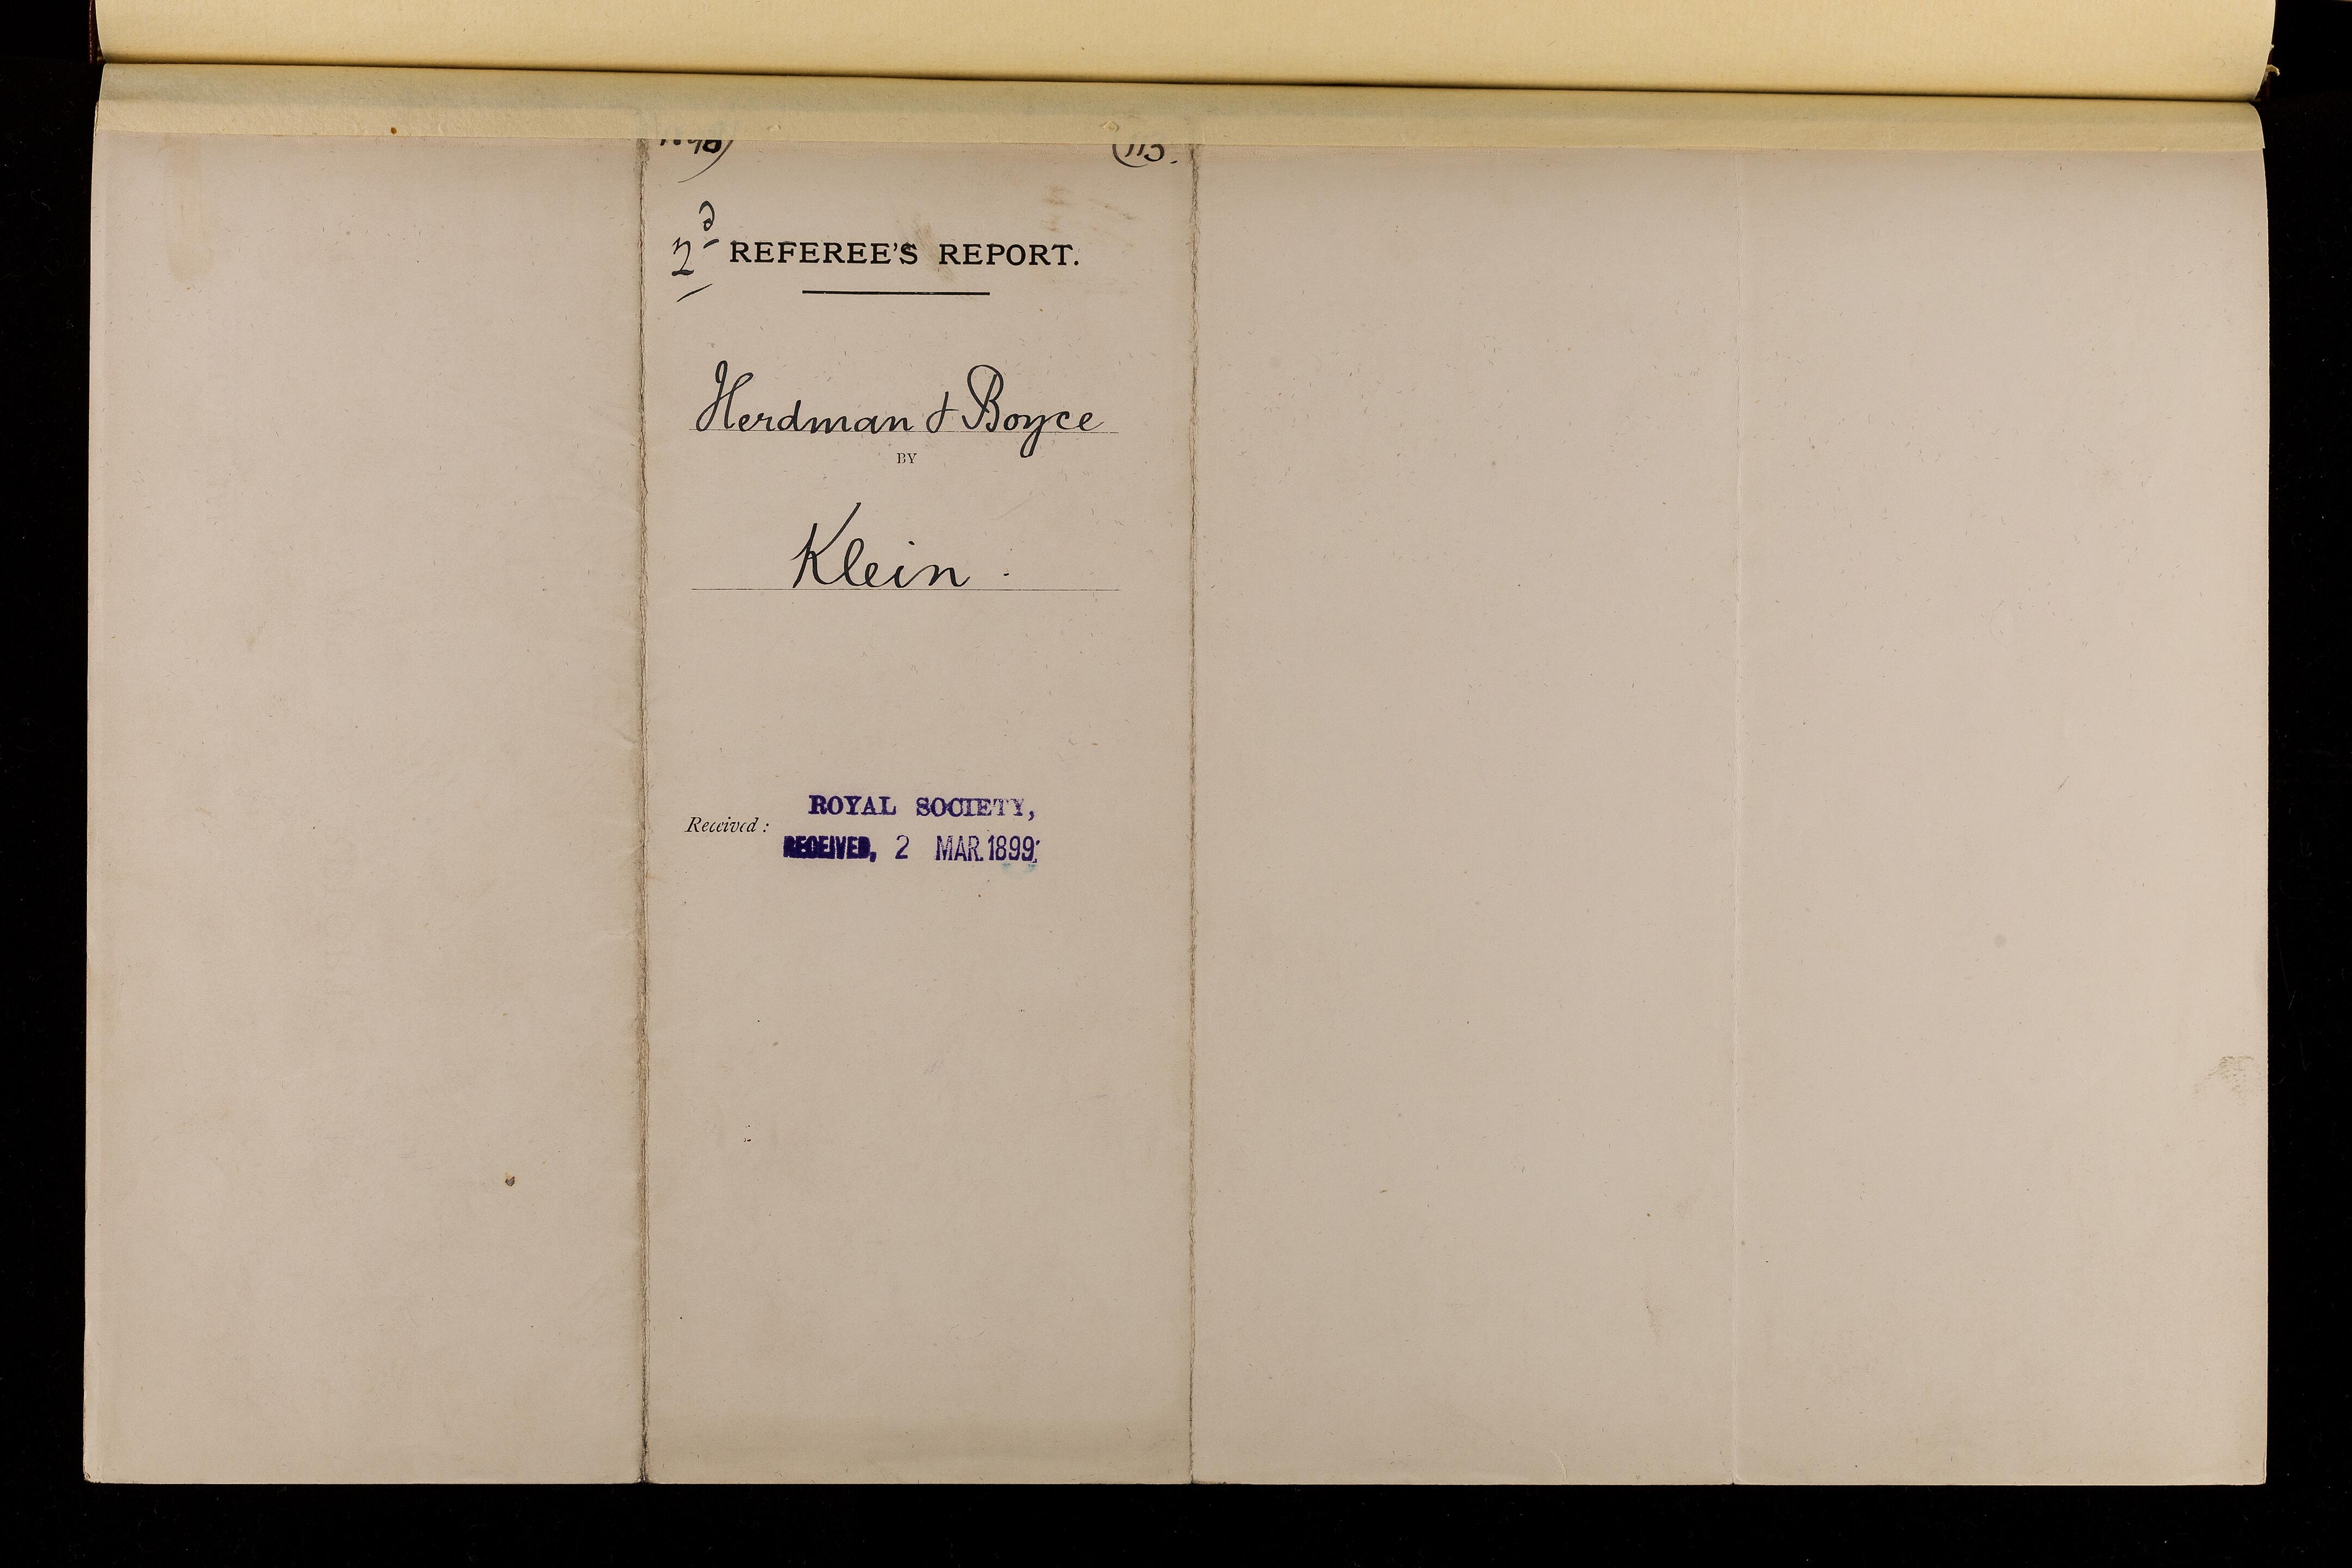 113.
2d REFEREE'S REPORT.
Herdman & Boyce
BY
Klein.
Received:
ROYAL SOCIETY,
RECEIVED, 2 MAR. 1899.